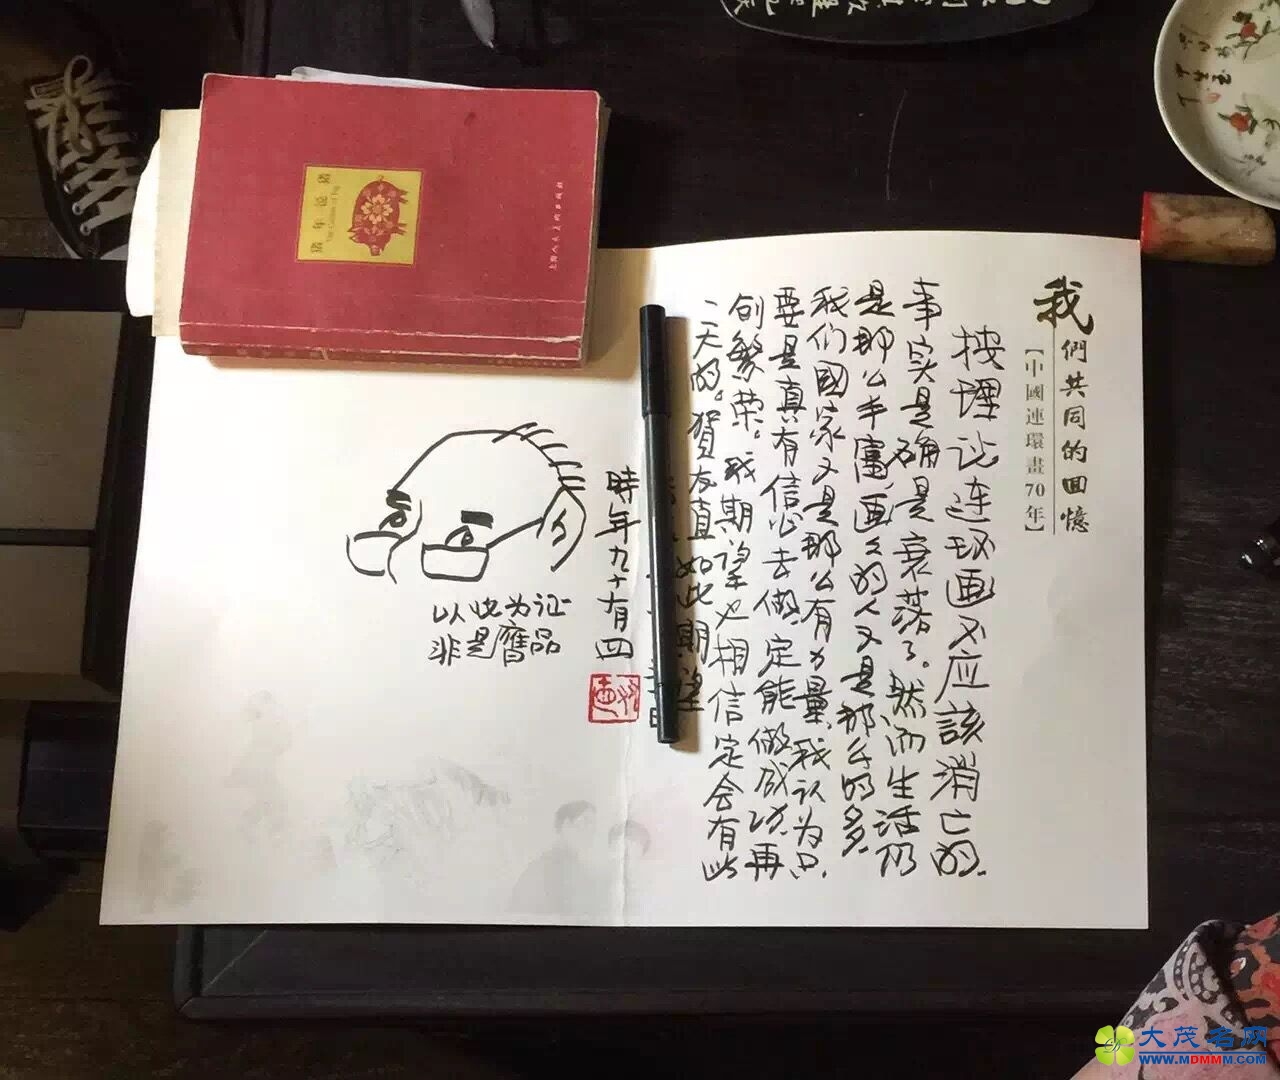 我們共同的回憶
【中國連環畫70年】
按理论连环画不应該消亡的.
事实是确是衰落了。然而生活仍
是那么丰富,画々的人又是那么的多.
我们國家又是那么有力量,我认为只
要是真有信心去做,定能做成功.再
创繁荣。我期望也相信定会有此
一天的。贺友直如此期望
時年九十有四
以此为证
非是膺品
猪年说猪
The Culture of Pig
上海人民美術出版社
大茂名网
WWW.MDMMM.COM